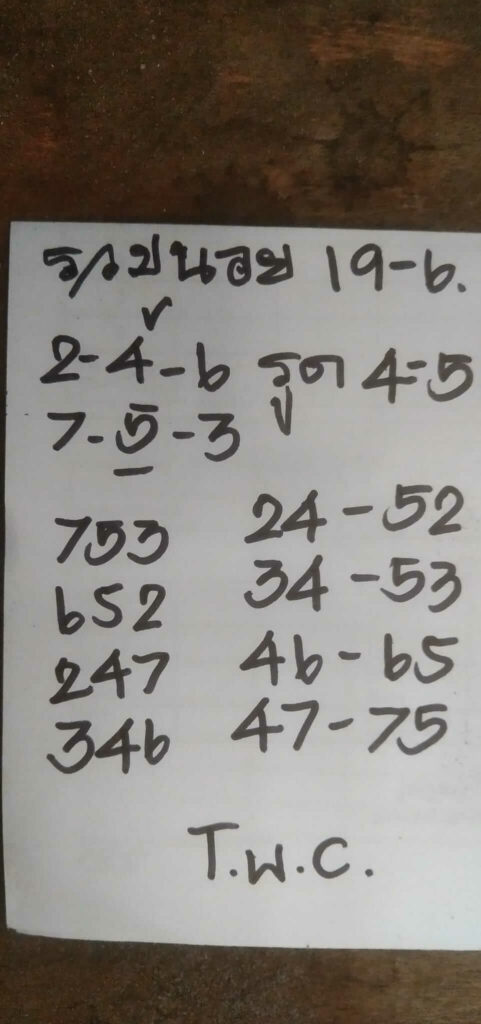 ฮานอย 19-6.
2-4-6 รูด 4-5
7-5-3
753 24-52
652 34-53
247 46-65
346 47-75
T.W.C.